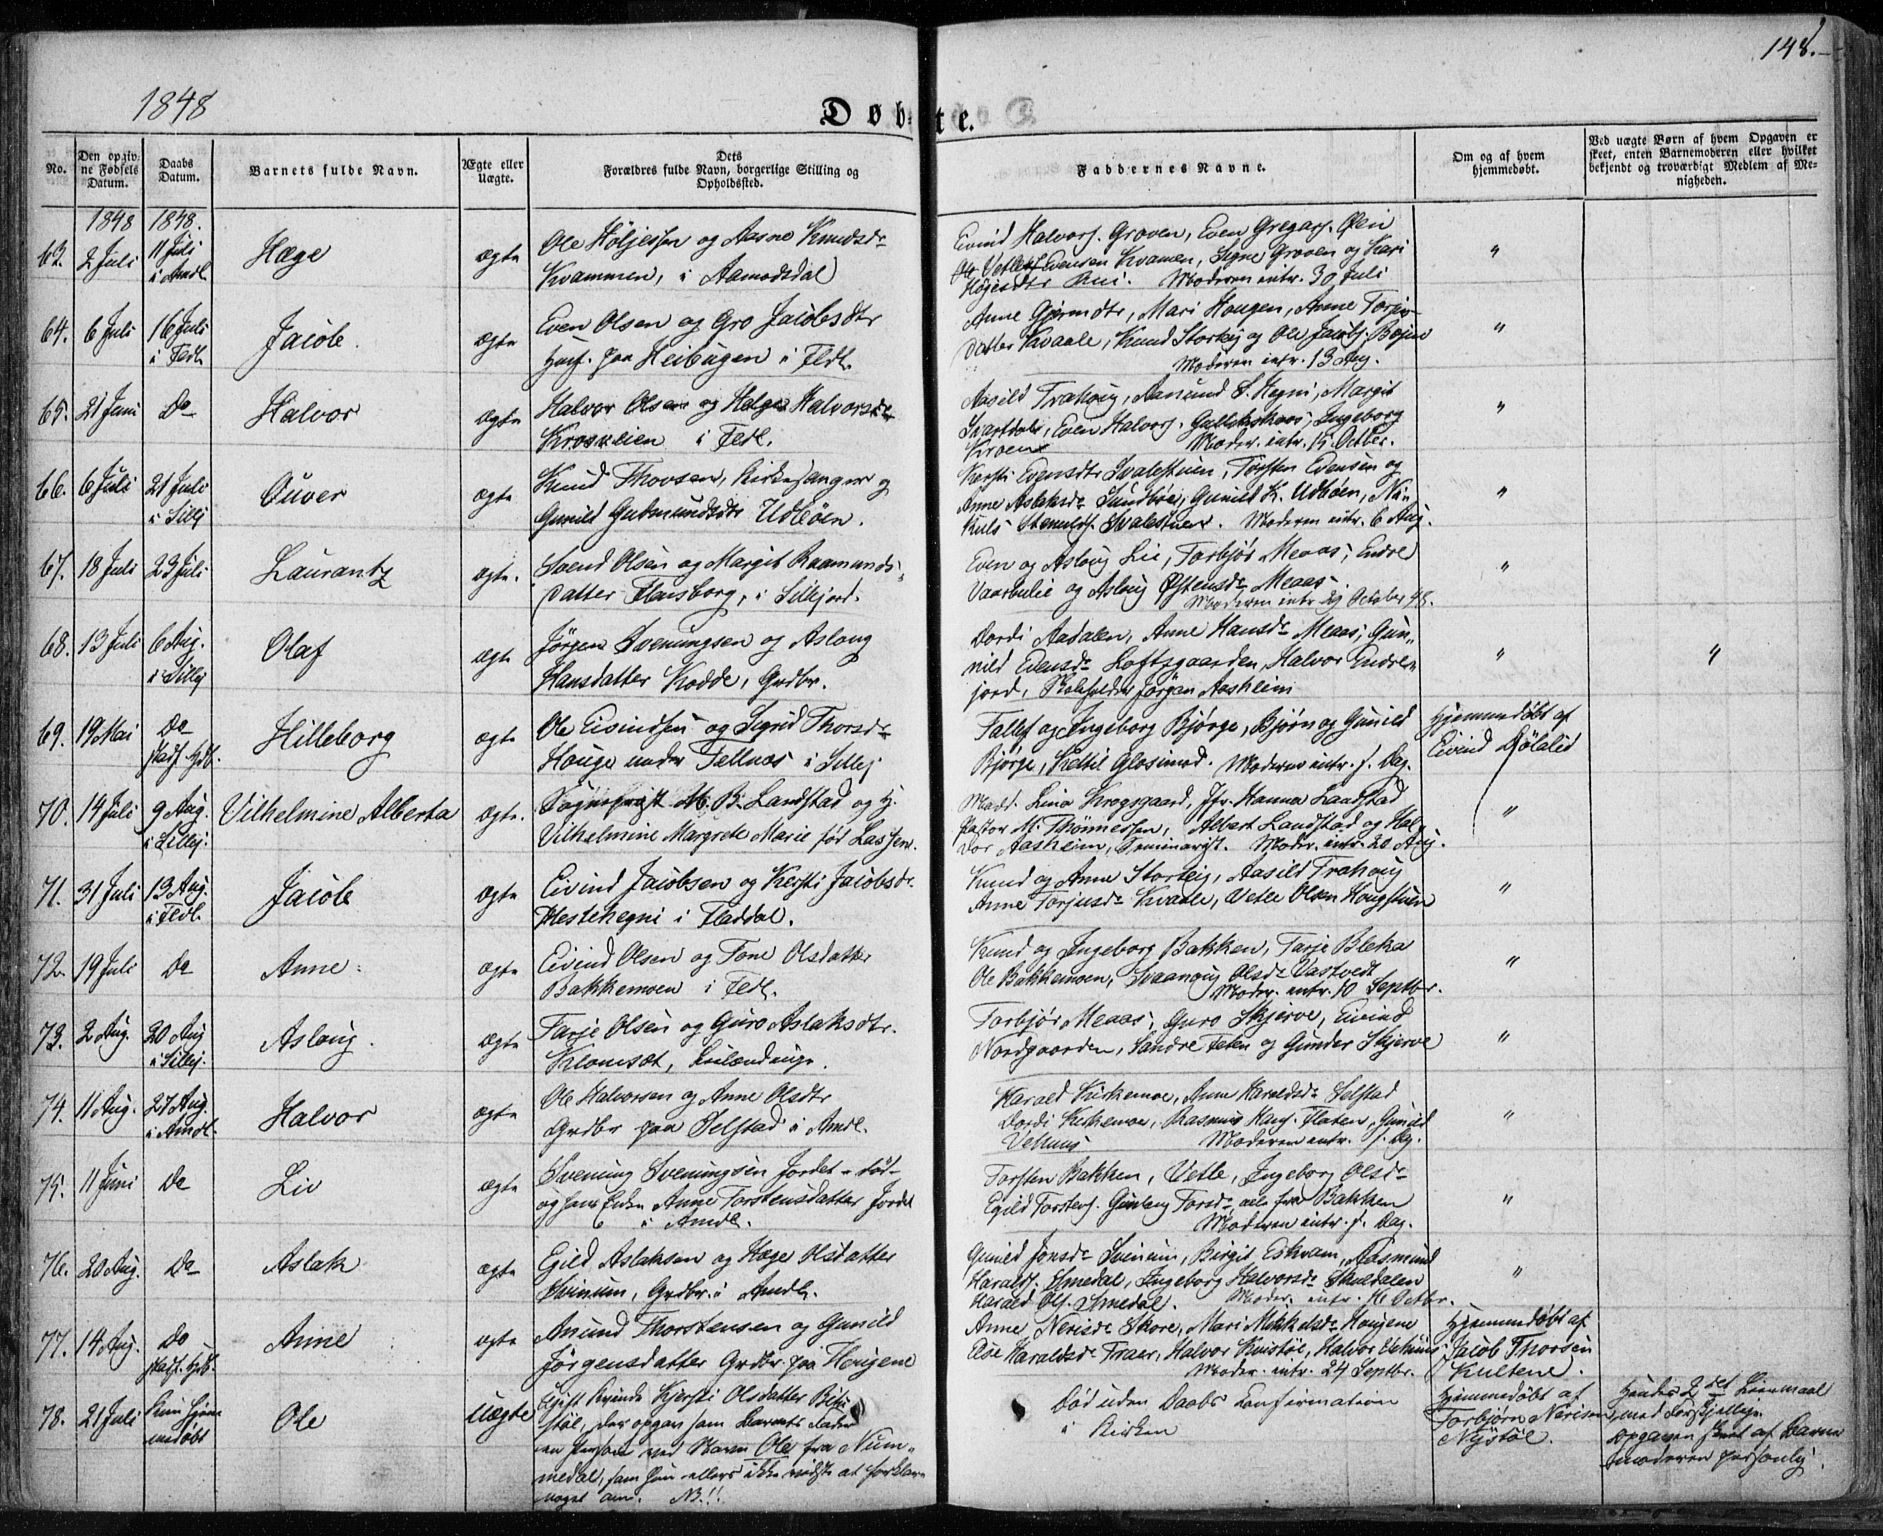 148.
1848
Døbte.
No.
Den opgivne Fødsels Datum.
Daabs Datum.
Barnets fulde Navn.
Ægte eller Uægte.
Dets Forældres fulde Navn, borgerlige Stilling og Opholdssted.
Faddernes Navne.
Om og af hvem hjemmedøbt.
Ved uægte Børn af hvem Opgaven er skeet, enten Barnemoderen eller hvilket bekjendt og troværdigt Medlem af Menigheden.
1848 1848.
63. 2 Juli 11 Juli i Amdl. Hæge ægte
Ole Höljessen og Aasne Knudsdr
Kvammen, i Aamodsdal
Eivind Halvors. Groven, Even Gregars. Öen
Vetle Evensen Kvamen, Signe Groven og Kari
Moderen intr. 30 Juli
"
64. 6 Juli 16 Juli i Fldl. Jacob. ægte
Even Olsen og Gro Jacobsdtr
Husf. paa Heibugen i Fldl.
Anne Gjermdtr, Mari Hougen, Anne Torju-
datter Kvaale, Knud Storleig og Ole Jacobs.
Moderen intr. 13 Aug.
"
65. 21 Juni Do Halvor ægte
Halvor Olsen og Helge Halvorsdr
Kroskleien i Fldl.
Aasild Trahoug, Aasmund S. Hegni, Margit
Svartdal, Even Halvors. Gullikskaas, Ingeborg
Kroen Moder. intr. 1. Octber.
"
66. 6 Juli 21 Juli i Sillj Ouver ægte
Knud Thovsen, Kirkesanger og
Gunild Gudmundsdtr Udböen.
Kersti Evensdtr Svalestuen, Torsten Evensen og
Anne Aslaksdr Sundböe, Gunild K. Udböen, Ni-
kuls Stenulfs. Svalestuen. Moderen intr. 6 Aug.
"
67. 18 Juli 23 Juli Laurantz ægte.
Svend Olsen og Margit Raamunds-
datter Flausborg, i Sillejord.
Even og Aslaug Lie, Torbjör Meaas, Endre
Vaarbulie og Aslaug Östensdr Meaas.
Moderen intr 29 October 48.
"
68. 13 Juli 6 Aug. i Sillej Olaf ægte
Jörgen Sveinungsen og Aslaug
Hansdatter Kodde, Grdbr.
Dordi Aasdalen, Anne Hansdr Meaas, Gun-
nild Evensdr Loftsgaarden, Halvor Endre-
jord, Skoleholder Jörgen Aasheim
" "
69. 19 Mai Do stadf. Hjdb. Hilleborg ægte
Ole Eivindsen og Sigrid Thorsdr
Houge under Tellnes i Sillej
Tallef og Ingeborg Bjørge, Bjørn og Gunild
Bjørge, Kettil Glosimod. Moderen intr. s. Dag.
Hjemmedøbt af
Eivind Dölalid
70. 14 Juli 9 Aug. i Sillej. Vilhelmine Alberta ægte.
Sognepræst M. B. Landstad og H.
Vilhelmine Margrete Marie fød Lassen.
Mad. Lina Krogsgaard, Jfr. Hanna Landstad
Pastor M. Thönnessen, Albert Landstad og Hal-
vor Aasheim, Seminarist. Moder. intr. 20 Aug.
"
71. 31 Juli 13 Aug. i Fldl. Jacob ægte
Eivind Jacobsen og Kersti Jacobsdr.
Hestehegni i Fladdal.
Knud og Anne Storleig, Aasild Trahoug
Anne Torjusdr Kvaale, Vetle Olsen Hougstuen
"
72. 19 Juli Do Anne. ægte
Eivind Olsen og Tone Olsdatter
Bakkemoen i Fldl.
Knud og Ingeborg Bakken, Tarje Bleka
Ole Bakkemoen, Svaanoug Olsdr Vastvedt
Moder. intr. 10 Septbr.
"
73. 2 Aug. 20 Aug i Sillej. Aslaug. ægte
Tarje Olsen og Guro Aslaksdtr.
Klomsæt,
Torbjör Meaas, Guro Skjerve, Eivind
Nordgaarden, Sandre Feten og Gunder Skjerve
"
74. 11 Aug. 27 Aug. i Amdl. Halvor ægte
Ole Halvorsen og Anne Olsdtr
Grdbr paa Selstad i Amdl.
Harald Kirkemoe, Anne Haraldsdr Selstad
Dordi Kirkemoe, Rasmus Hans. Floten, Gunild
Moderen intr. s. Dag.
"
75. 11 Juni Do Liv ægte
Svening Sveningsen Jordet - død -
og hans Enke Anne Torstensdatter Jordet
i Amdl.
Torsten Bakken, Vetle, Ingeborg Olsdr
Egild Torstens. Gunleug Torsdr, alle fra Bakken
Moderen intr. s. Dag.
"
76. 20 Aug. Do Aslak ægte
Egild Aslaksen og Hæge Olsdatter
Svinum, Grdbr. i Amdl.
Gunild Jonsdr Svinum, Birgit Eskvam, Aasmund
Haralds. Smedal, Ingeborg Halvorsdr Skuldalen
Harald Ols. Smedal. Moder. intr. 1 Octbr.
"
77. 14 Aug. Do stadf. Hjdb. Anne ægte
Amund Thorstensen og Gunild
Jörgensdatter Grdbr. paa Hougene
Anne Nerisdr Skore, Mari Mikkelsdr Hougene
Haraldsdr Traer, Halvor
Moder. intr. 24 Septbr.
Hjemmedøbt af
Jacob Thorsen
Kultene.
78. 21 Juli Kun hjemmedøbt Ole uægte
Ugift Kvinde Kjersti Olsdatter
stöl, der opgav som Barnets Fader
en Person ved Navn Ole fra Num-
medal, som hun ellers ikke vidste at forklare
noget om. NB!!
Død uden Daabs Confirmation
i Kirken
Hjemmedøbt af
Torbjörn Nerisen
Nystöl.
Hendes 2det Leiermaal
med
Opgaven skeet af Barne
moderen personlig.